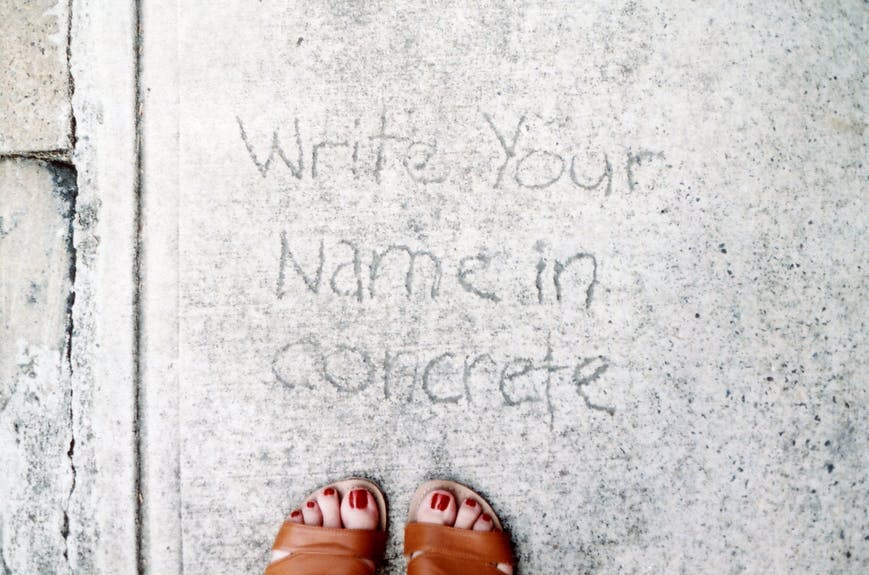 Write Your
Name in
Concrete